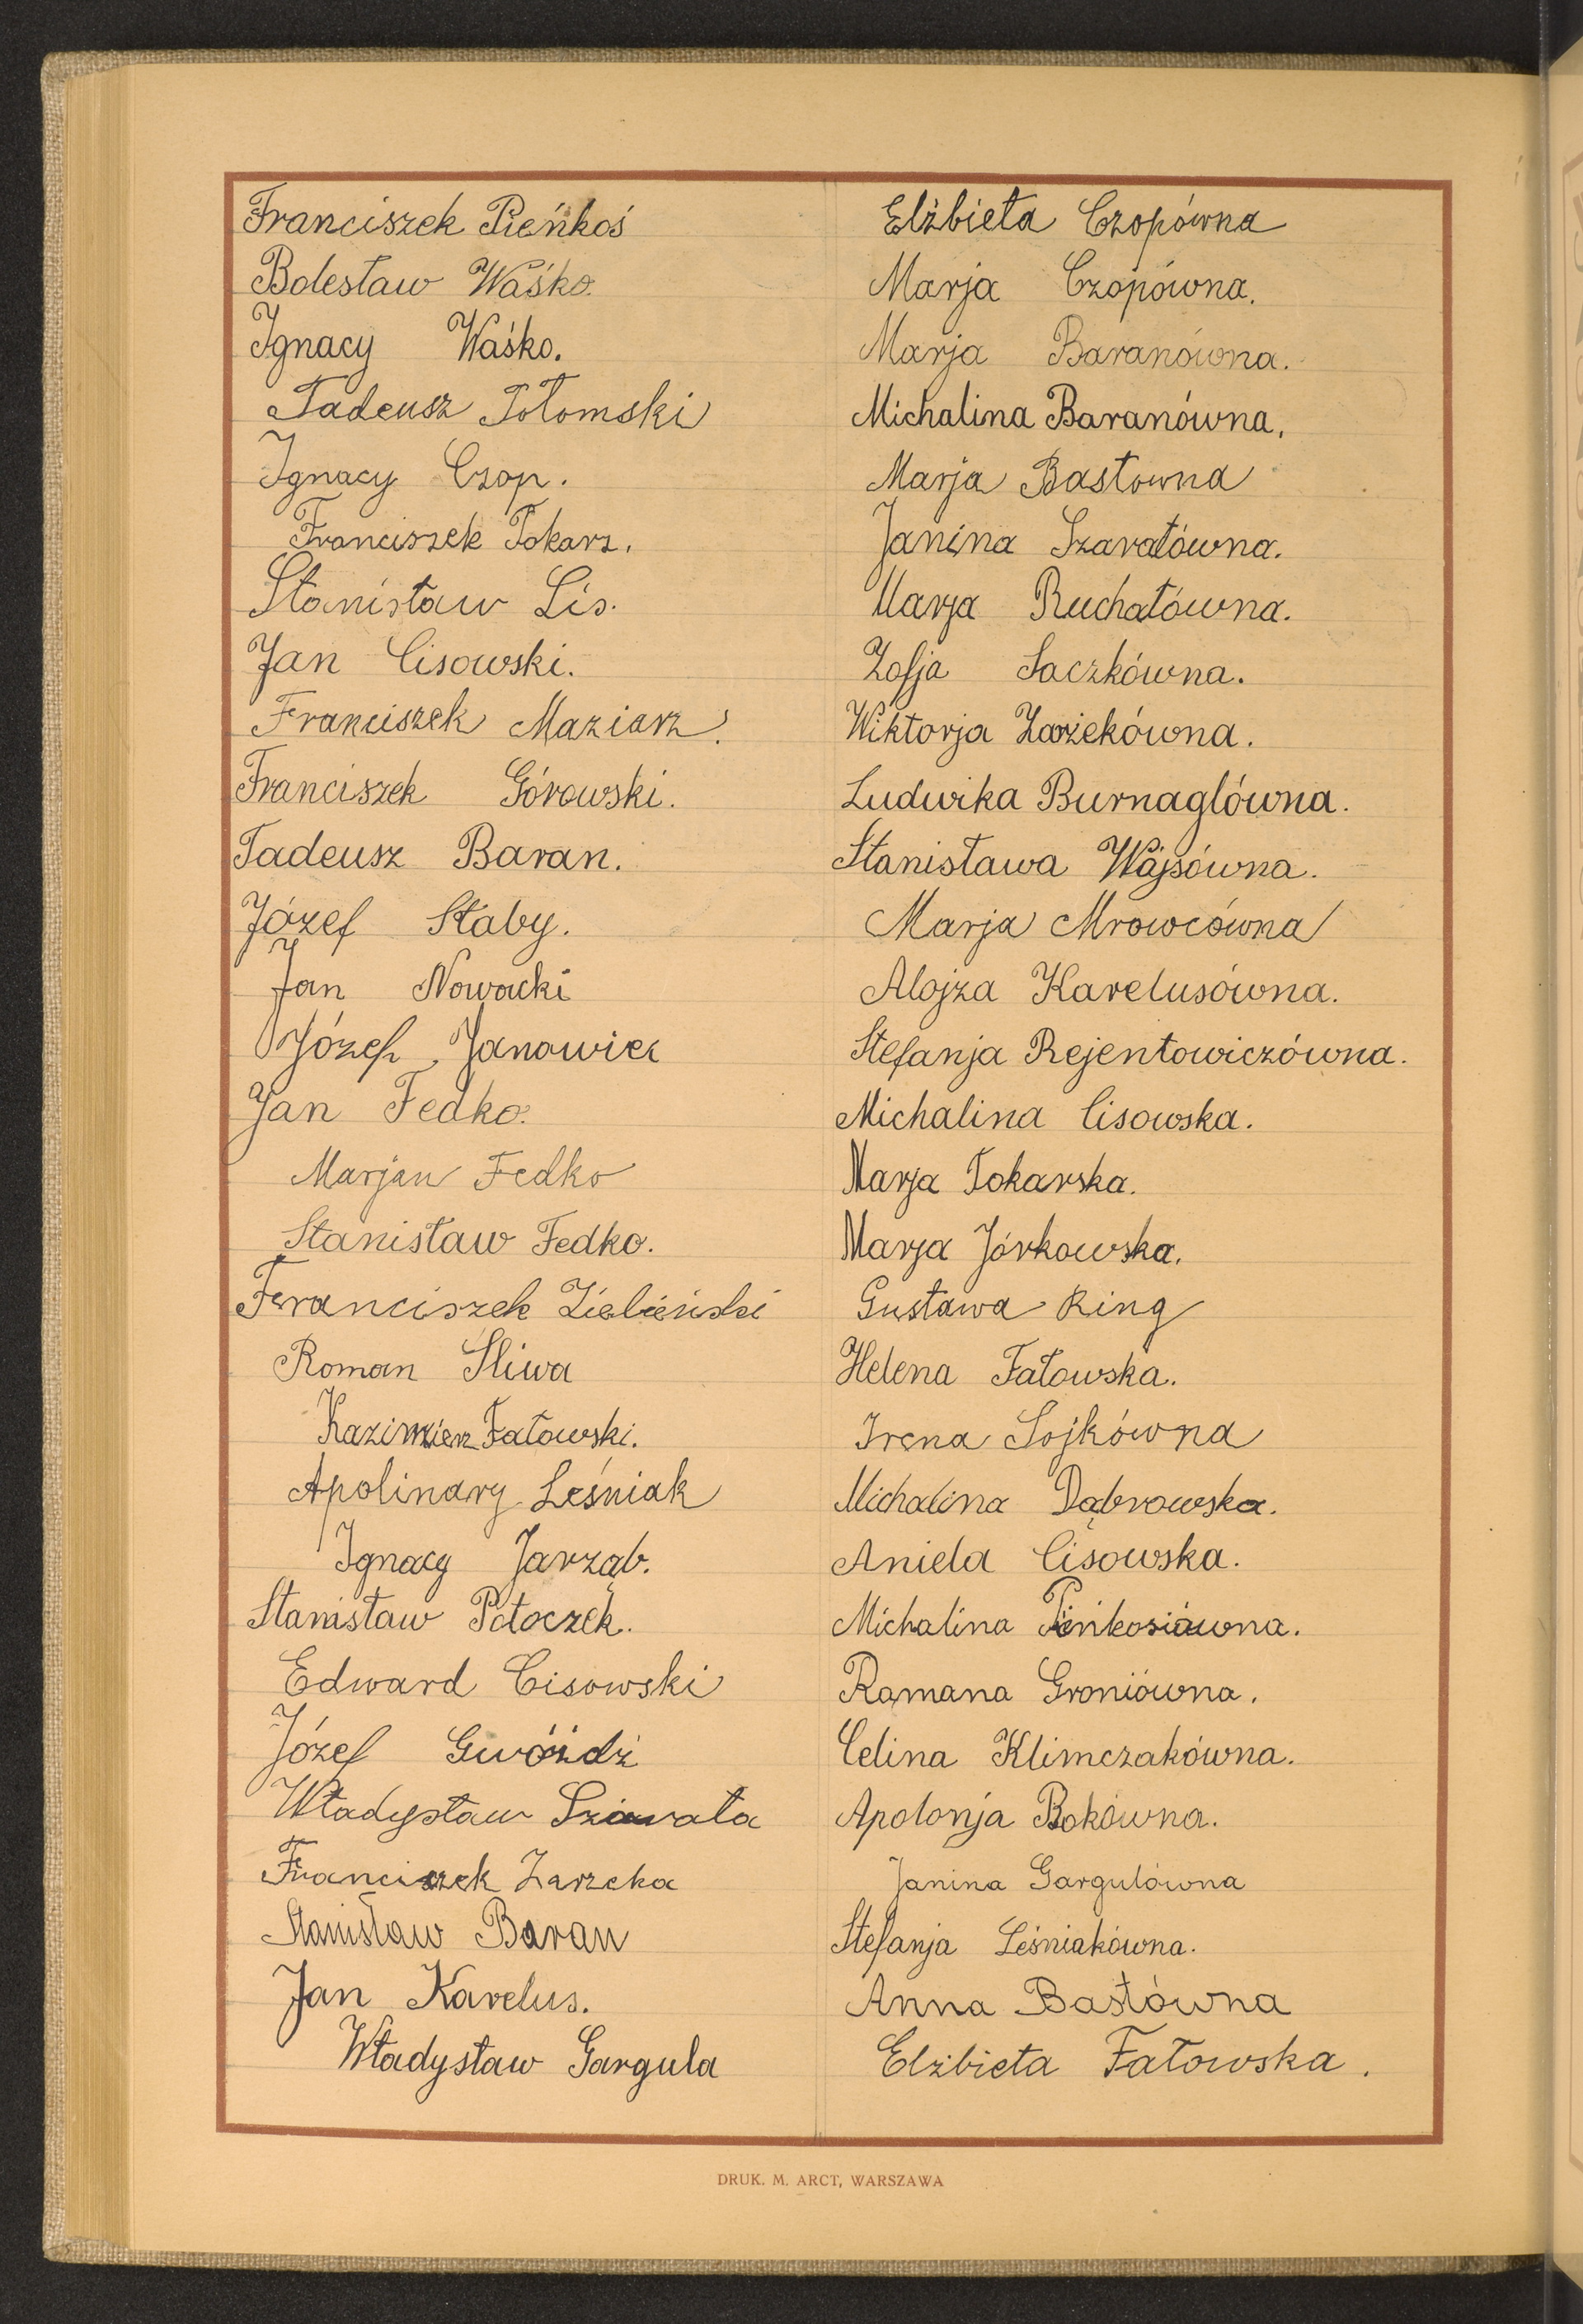 Franciszek Pieńkoś
Bolesław Waśko.
Ignacy Waśko.
Tadeusz Połomski
Ignacy Czop.
Franciszek Tokarz.
Stanisław Lis.
Jan Cisowski.
Franciszek Maziarz.
Franciszek Górowski.
Tadeusz Baran.
Józef Słaby.
Jan Nowacki
Józef Janowiec
Jan Fedko.
Marjan Fedko
Stanisław Fedko.
Franciszek Zieliński
Roman Śliwa
Kazimierz Fatowski.
Apolinary Leśniak
Ignacy Jarząb.
Stanisław Potoczek.
Edward Cisowski
Józef Gwóźdź
Władysław Szawała
Franciszek Zarzeka
Stanisław Baran
Jan Karelus.
Władysław Gargula
Elżbieta Czopówna
Marja Czopówna.
Marja Baranówna.
Michalina Baranówna.
Marja Bastowna
Janina Szarałówna.
Marja Ruchałówna.
Zofja Saczkówna.
Wiktorja Zarzekówna.
Ludwika Burnaglówna.
Stanisława Wajsówna.
Marja Mrowcówna
Alojza Karelusówna.
Stefanja Rejentowiczówna.
Michalina Cisowska.
Marja Tokarska.
Marja Jórkowska.
Gustawa Ring
Helena Fatowska.
Irena Sojkówna
Michalina Dąbrowska.
Aniela Cisowska.
Michalina Pieńkosiówna.
Romana Groniówna.
Celina Klimczakówna.
Apolonja Bokówna.
Janina Gargulówna
Stefanja Leśniakówna.
Anna Bastówna
Elżbieta Fatowska.
DRUK. M. ARCT, WARSZAWA